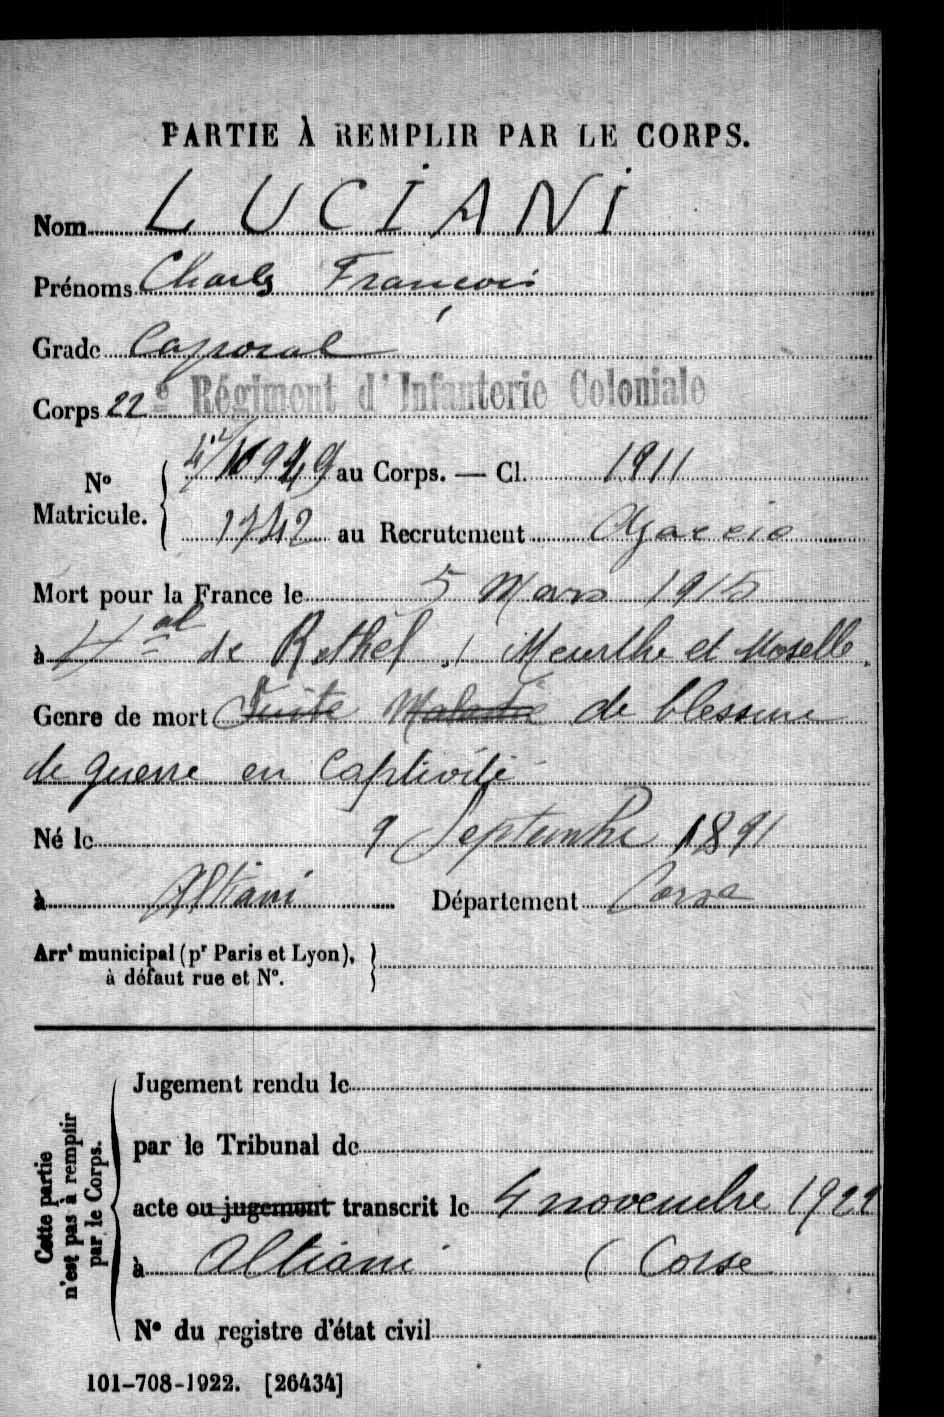 PARTIE À REMPLIR PAR LE CORPS.
Nom LUCIANI
Prénoms Charles François
Grade Caporal
Corps 22e Régiment d'Infanterie Coloniale
No Matricule. au Corps. — Cl. 1911
1742 au Recrutement Ajaccio
Mort pour la France le 5 Mars 1915
à Hal de Rethel, Meurthe et Moselle
Genre de mort Suite Maladie de blessure
de guerre en Captivité
Né le 9 Septembre 1891
à Altiani Département Corse
Arrt municipal (pr Paris et Lyon),
à défaut rue et No.
Cette partie n'est pas à remplir par le Corps.
Jugement rendu le
par le Tribunal de
acte ou jugement transcrit le 4 novembre 1922
à Altiani (Corse
No du registre d'état civil
101-708-1922. [26434]